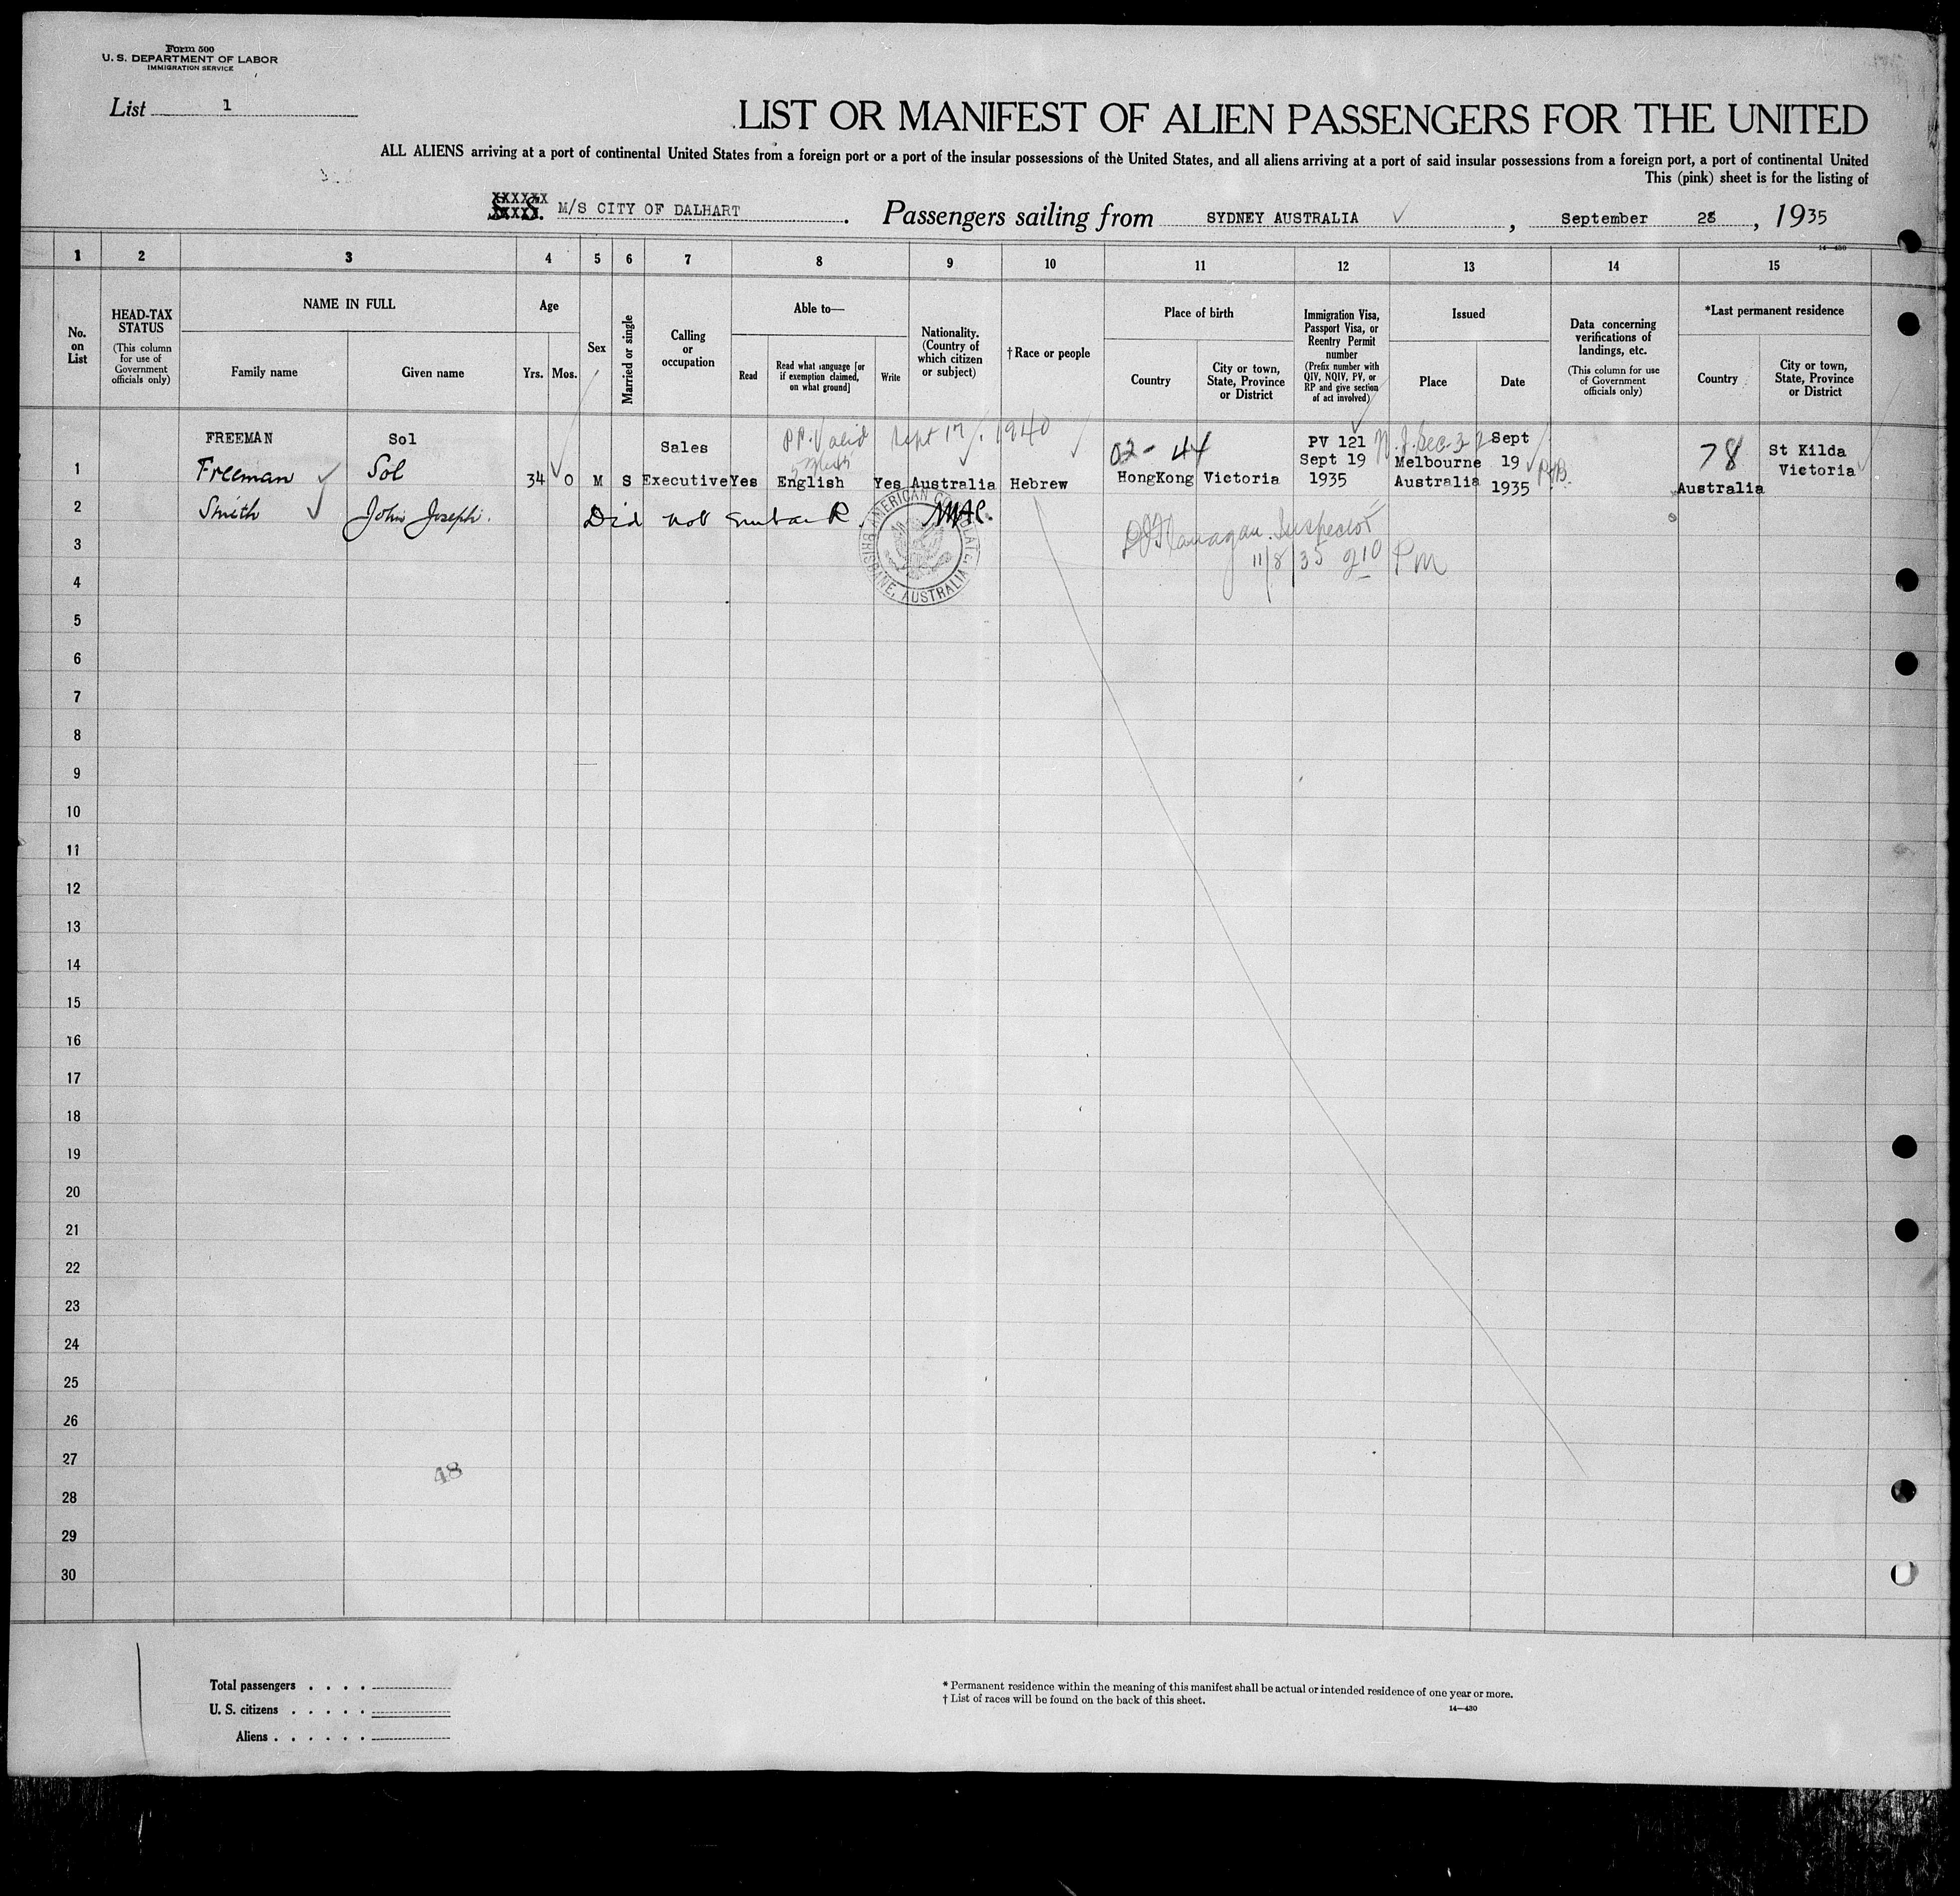 Form 500
U. S. DEPARTMENT OF LABOR
IMMIGRATION SERVICE
List 1
LIST OR MANIFEST OF ALIEN PASSENGERS FOR THE UNITED
ALL ALIENS arriving at a port of continental United States from a foreign port or a port of the insular possessions of the United States, and all aliens arriving at a port of said insular possessions from a foreign port, a port of continental United
This (pink) sheet is for the listing of
M/S CITY OF DALHART. Passengers sailing from SYDNEY AUSTRALIA, September 28, 1935
14—430
1 2 3 4 5 6 7 8 9 10 11 12 13 14 15
No. on List
HEAD-TAX STATUS
(This column for use of Government officials only)
NAME IN FULL
Family name
Given name
Age
Yrs. Mos.
Sex
Married or single
Calling or occupation
Able to—
Read
Read what language [or if exemption claimed, on what ground]
Write
Nationality. (Country of which citizen or subject)
† Race or people
Place of birth
Country
City or town, State, Province or District
Immigration Visa, Passport Visa, or Reentry Permit number
(Prefix number with QIV, NQIV, PV, or RP and give section of act involved)
Issued
Place
Date
Data concerning verifications of landings, etc.
(This column for use of Government officials only)
*Last permanent residence
Country
City or town, State, Province or District
PP. Valid Sept 17, 1940
FREEMAN Sol
1 Freeman Sol 34 0 M S Sales Executive Yes English Yes Australia Hebrew HongKong Victoria PV 121 Sept 19 1935 Melbourne Australia Sept 19 1935 Australia St Kilda Victoria
02- 44
78
2 Smith John Joseph. Did not embark.
AMERICAN CONSULATE
BRISBANE, AUSTRALIA
Flanagan. Inspector
11/8/35 2 10 Pm
3
4
5
6
7
8
9
10
11
12
13
14
15
16
17
18
19
20
21
22
23
24
25
26
27
48
28
29
30
Total passengers . . . .
U. S. citizens . . . . .
Aliens . . . . . .
* Permanent residence within the meaning of this manifest shall be actual or intended residence of one year or more.
† List of races will be found on the back of this sheet.
14—430